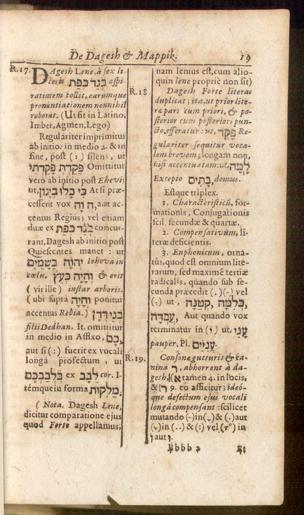 De Dagesh & Mappik. 19
R.17. Dagesh Lene, à sex li-
teris בגד כפת aspi-
rationem tollit, earumque
pronuntiationem nonnihil
roborat. (Ut fit in Latino,
Imber, Agmen, Lego)
Regulariter imprimitur
ab initio: in medio à & in
fine, post (:) silens, ut
פקדת Omittitur
vero ab initio post Ehevi;
ut כי At si præ-
cesserit vox aut ac-
centus Regius; vel etiam
duæ ex בגד כפת concur-
rant, Dagesh ab initio post
Quiescentes manet: ut
יהוה בשמים Iehova in
cælu, והיה כעץ & erit
(virille) instar arboris.
(ubi supra והיה ponitur
accentus Rebia.) בני דדן
filii Dedhan. It. omittitur
in medio in Affixo,
aut si (:) fuerit ex vocali
longâ profectum, ut
בלבבכם ex לבב cor. I-
témque in forma מלכות
(Nota. Dagesh Lene,
dicitur comparatione ejus
quod Forte appellamus,
nam lenius est, cum alio-
quin lene propriè non sit)
R.18. Dagesh Forte literas
duplicat; ita, ut prior lite-
ra pars cum priori, & po-
sterior cum posteriori pun-
cto, efferatur: ut, פקד, Re-
gulariter sequitur voca-
lem brevem; longam non,
nisi accentuatam: ut,
Excepto בתים, domus.
Estque triplex.
1. Characteristicũ, for-
mationis, Conjugationis
scil. secundæ & quartæ.
2. Compensativum, li-
teræ deficientis.
3. Euphonicum, orna-
tûs, quod est omnium lite-
rarum, sed maximè tertiæ
radicalis, quando sub se-
cunda præcedit (.) (-) vel
(:) ut, קטנה,
עבדה, Aut quando vox
terminatur in (י) ut, עני
pauper. Pl. עניים.
R.19. Consona gutturis & ca-
nina ר, abhorrent à da-
gesh (א tamen 4. in locis,
& ר 9. eo afficitur: ideó-
que defectum ejus vocali
longâ compensant: scilicet
mutando
Bbbb 2 Et